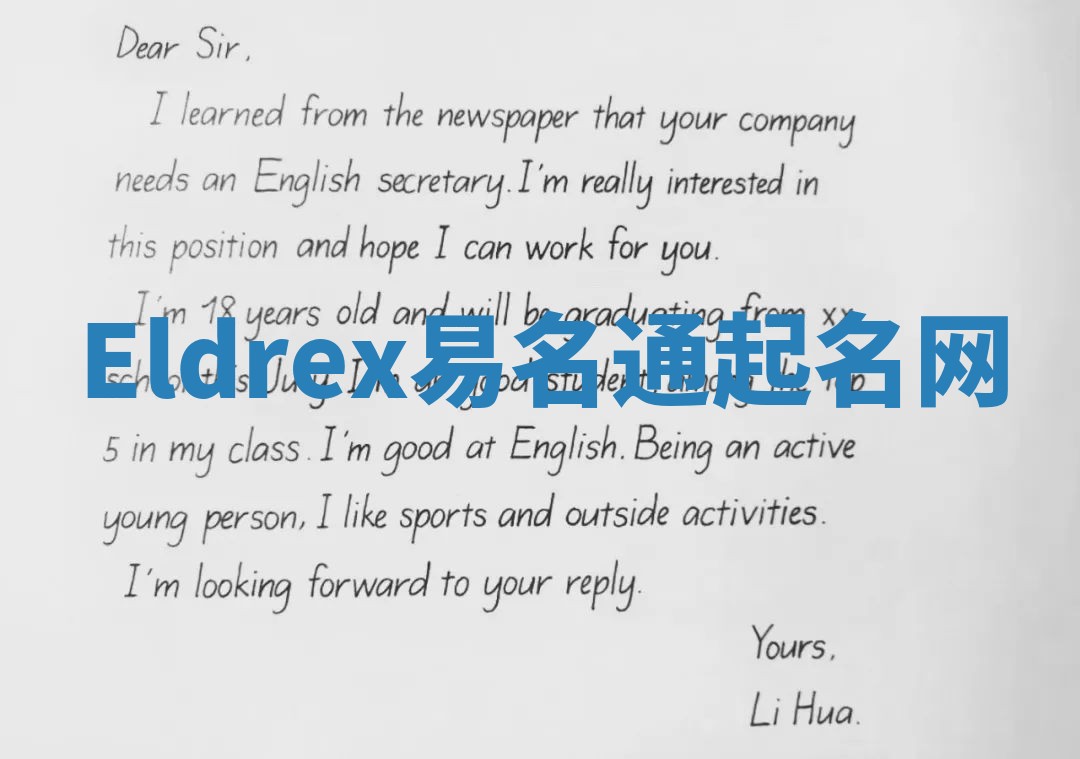 Dear Sir,
I learned from the newspaper that your company
needs an English secretary. I'm really interested in
this position and hope I can work for you.
I'm 18 years old and will be graduating from xx
Eldrex易名通起名网
school this July. I'm a good student, among the top
5 in my class. I'm good at English. Being an active
young person, I like sports and outside activities.
I'm looking forward to your reply.
Yours,
Li Hua.